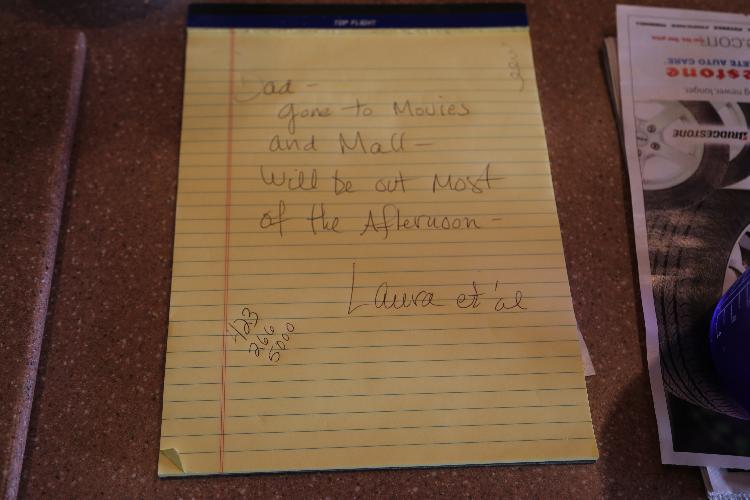 TOP FLIGHT
Dad -
gone to Movies
and Mall -
Will be out Most
of the Afternoon -
Laura et'al
266
5000
ETE AUTO CARE
stone
ng newer, longer.
BRIDGESTONE